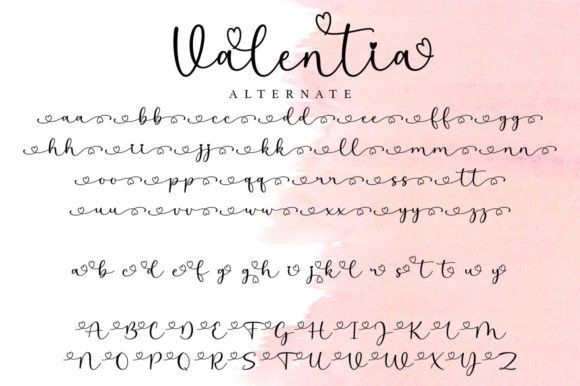 Valentia
ALTERNATE
aa bb cc dd ee ff gg
hh ii jj kk ll mm nn
oo pp qq rr ss tt
uu vv ww xx yy zz
a b c d e f g g h i j k l r s t t w y
A B C D E F G H I J K L M
N O P Q R S T U V W X Y Z